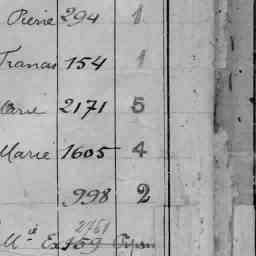 Pierre 294 1
Francis 154 1
Marie 2171 5
Marie 1605 4
998 2
2151
159